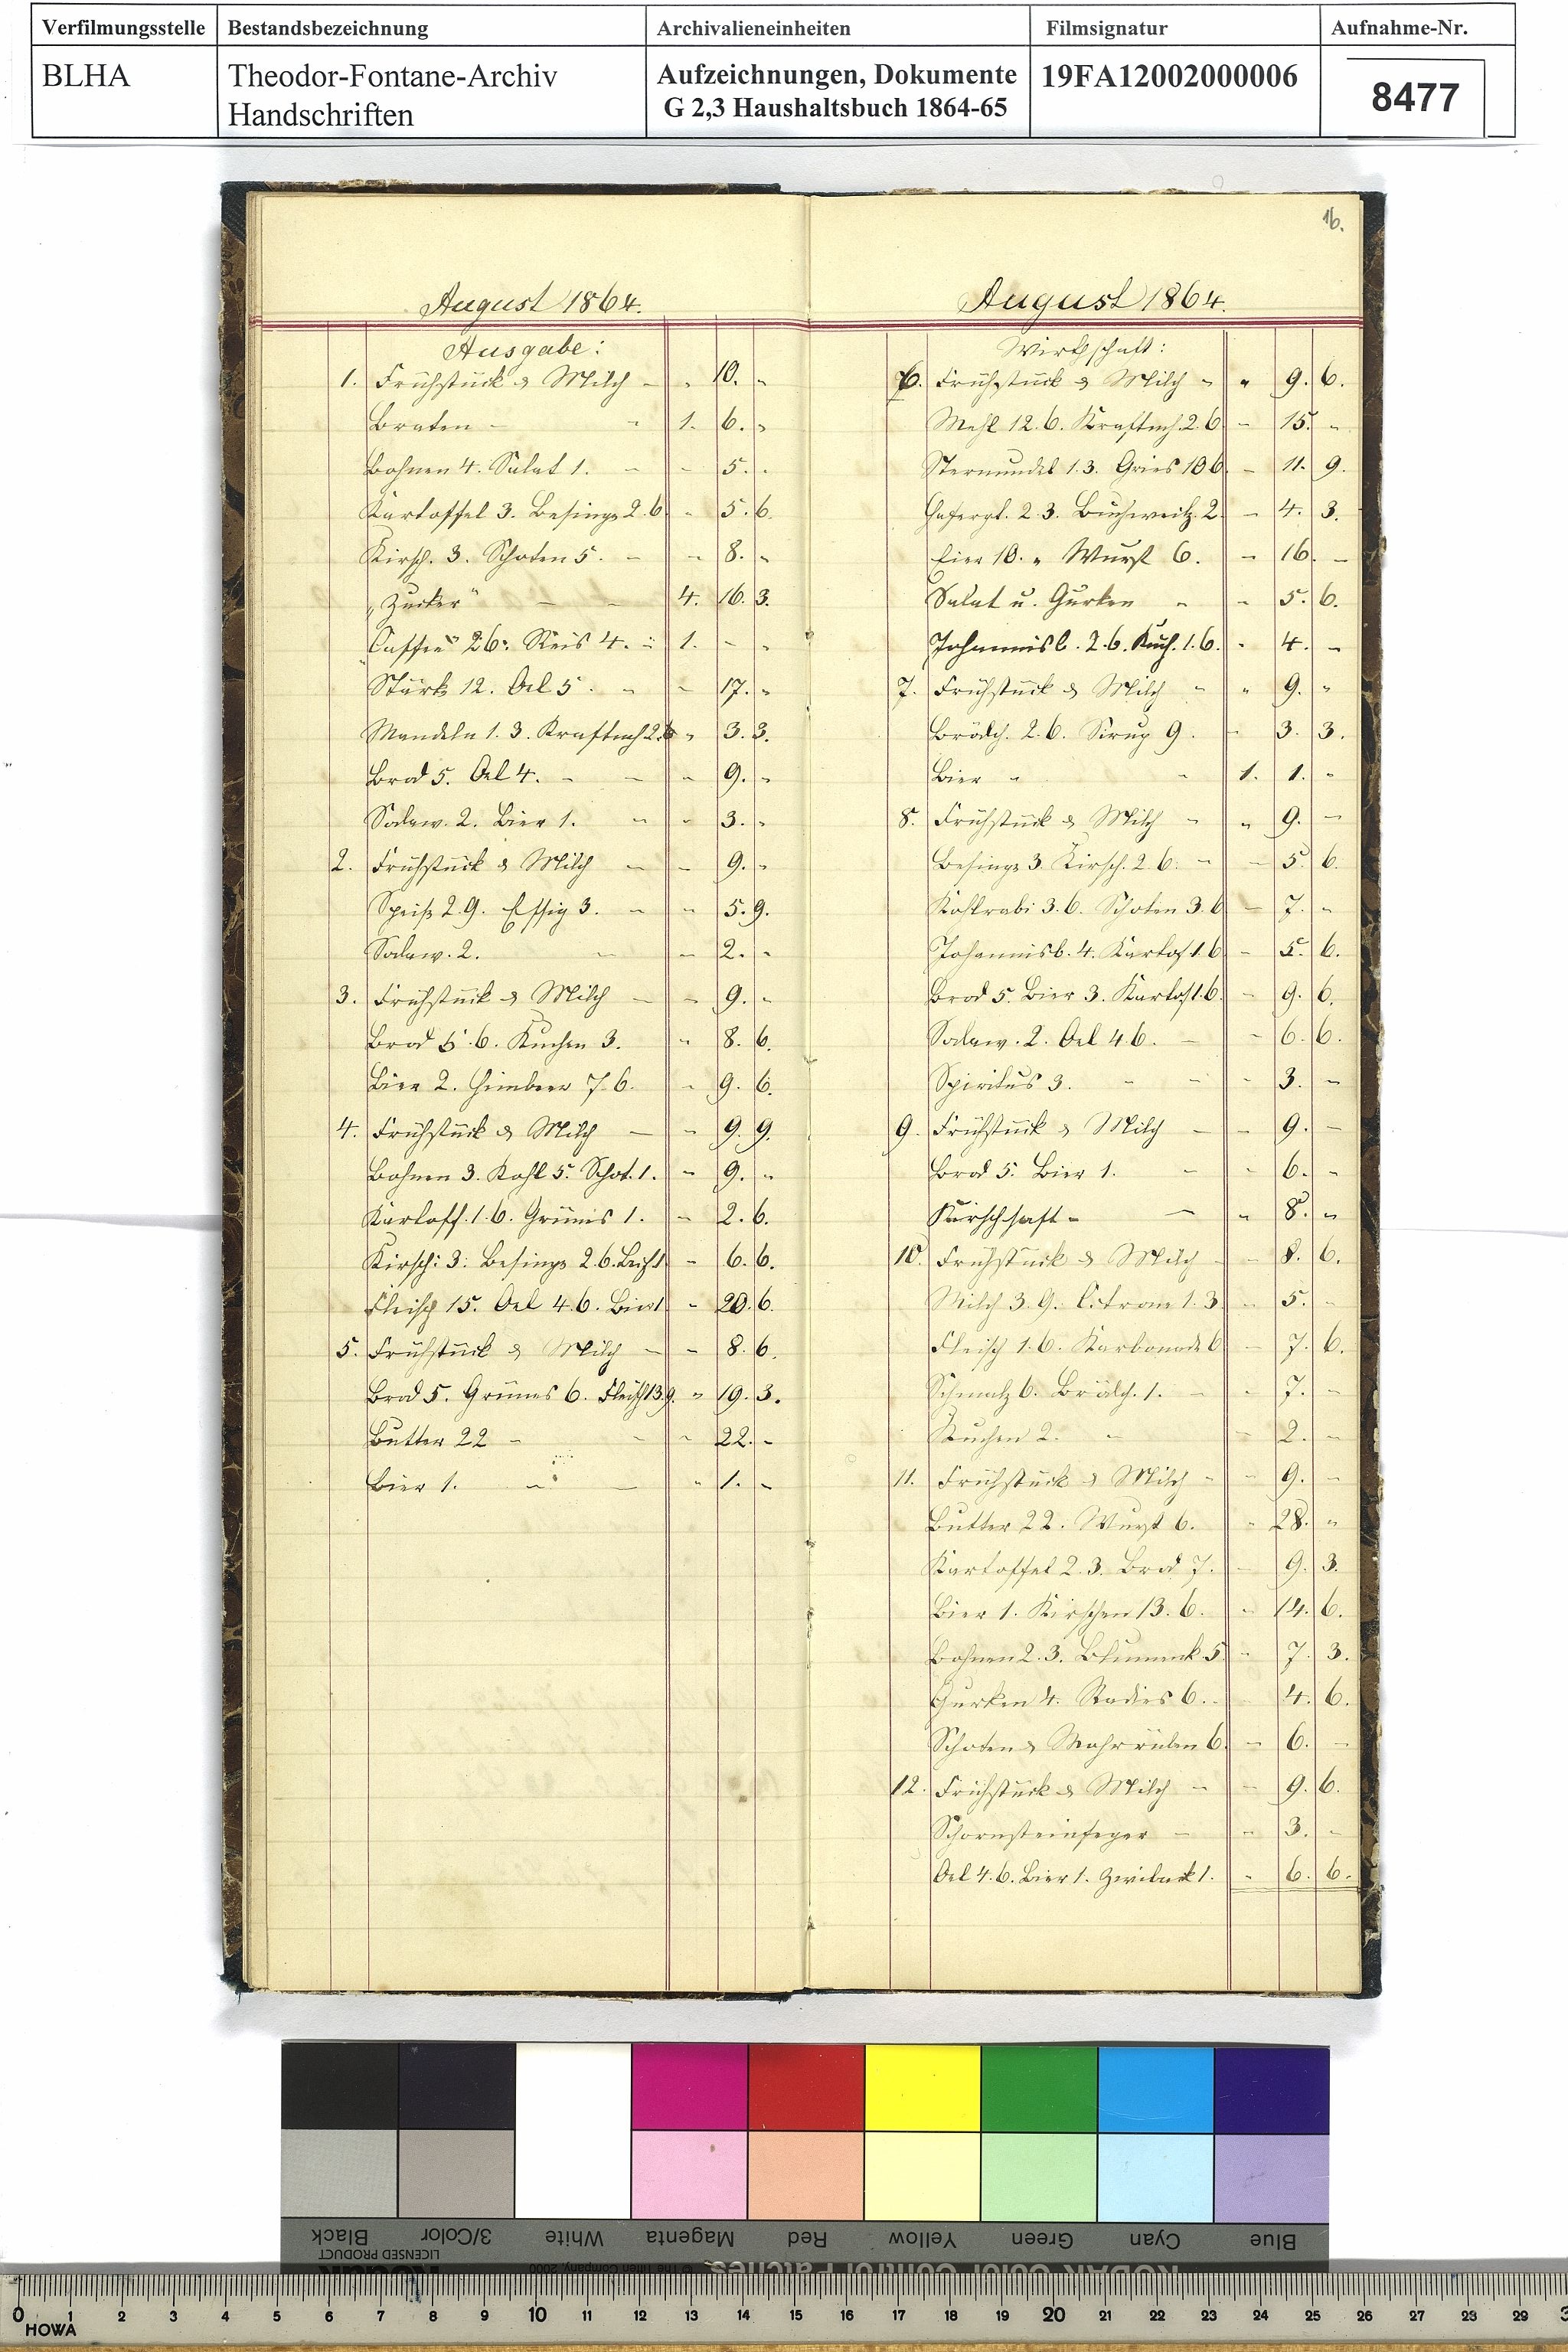 Verfilmungsstelle Bestandsbezeichnung Archivalieneinheiten Filmsignatur Aufnahme-Nr.
BLHA Theodor-Fontane-Archiv Handschriften Aufzeichnungen, Dokumente G 2,3 Haushaltsbuch 1864-65 19FA12002000006 8477
August 1864.
Ausgabe:
1. Frühstück & Milch - " 10. "
Braten - " 1. 6. "
Bohnen 4. Salat 1. - - 5. "
Kartoffel 3. Besinge 2.6 " 5. 6.
Kirsch. 3. Schoten 5. - - 8. "
"Zucker" - - 4. 16. 3.
"Caffee" 26. Reis 4. " 1. - "
Stärke 12. Oel 5. " - 17. "
Mandeln 1. 3. Kraftmehl 2. " 3. 3.
Brod 5. Oel 4. - - - 9. "
Sodaw. 2. Bier 1. " " 3. "
2. Frühstück & Milch - - 9. "
Speise 2.9. Essig 3. " " 5. 9.
Sodaw. 2. - - 2. "
3. Frühstück & Milch - - 9. "
Brod 5.6. Kuchen 3. " 8. 6.
Bier 2. Himbeer 7.6. " 9. 6.
4. Frühstück & Milch - - 9. 9.
Bohnen 3. Kohl 5. Schot. 1. - 9. "
Kartoff. 1.6. Grünes 1. - 2. 6.
Kirsch: 3. Besinge 2.6. - 6. 6.
Fleisch 15. Oel 4.6. Bier 1 " 20. 6.
5. Frühstück & Milch - - 8. 6.
Brod 5. Grünes 6. Fleisch 13.9. " 19. 3.
Butter 22 - - " 22. -
Bier 1. - - " 1. -
16.
August 1864.
Wirthschaft:
6. Frühstück & Milch " " 9. 6.
Mehl 12.6. Kraftmh. 2.6 - 15. "
Sternnudel 1.3. Gries 10 6 - 11. 9.
Hafergr. 2.3. Buchweitz. 2. - 4. 3.
Eier 10. " Wurst 6. - 16. -
Salat u. Gurken " - 5. 6.
Johannisb. 2.6. Kuch. 1.6. " 4. -
7. Frühstück & Milch " " 9. "
Brödch. 2.6. Sirup 9. - 3. 3.
Bier " " 1. 1. "
8. Frühstück & Milch - " 9. -
Besinge 3 Kirsch. 2.6. - - 5. 6.
Kohlrabi 3.6. Schoten 3.6 - 7. "
Johannisb. 4. Kartof 1.6 - 5. 6.
Brod 5. Bier 3. Kartof 1.6. - 9. 6.
Sodaw. 2. Oel 4.6. - - 6. 6.
Spiritus 3. - - - 3. -
9. Frühstück & Milch - - 9. -
Brod 5. Bier 1. - - 6. -
Kirschsaft - - " 8. "
10. Frühstück & Milch - - 8. 6.
Milch 3.9. Citrone 1.3 - 5. -
Fleisch 1.6. Karbonade 6 - 7. 6.
Schmalz 6. Brödch. 1. - - 7. -
Kuchen 2. - - 2. -
11. Frühstück & Milch - - 9. -
Butter 22. Wurst 6. " 28. "
Kartoffel 2.3. Brod 7. - 9. 3.
Bier 1. Kirschen 13.6. - 14. 6.
Bohnen 2.3. Blumenk 5 - 7. 3.
Gurken 4. Radies 6. - 4. 6.
Schoten & Mohrrüben 6. - 6. -
12. Frühstück & Milch - - 9. 6.
Schornsteinfeger - - 3. -
Oel 4.6. Bier 1. Zwieback 1. - 6. 6.
Black 3/Color White Magenta Red Yellow Green Cyan Blue
LICENSED PRODUCT
Kodak © The Tiffen Company, 2000 KODAK Color Control Patches
0 1 2 3 4 5 6 7 8 9 10 11 12 13 14 15 16 17 18 19 20 21 22 23 24 25 26 27 28 29 3
HOWA